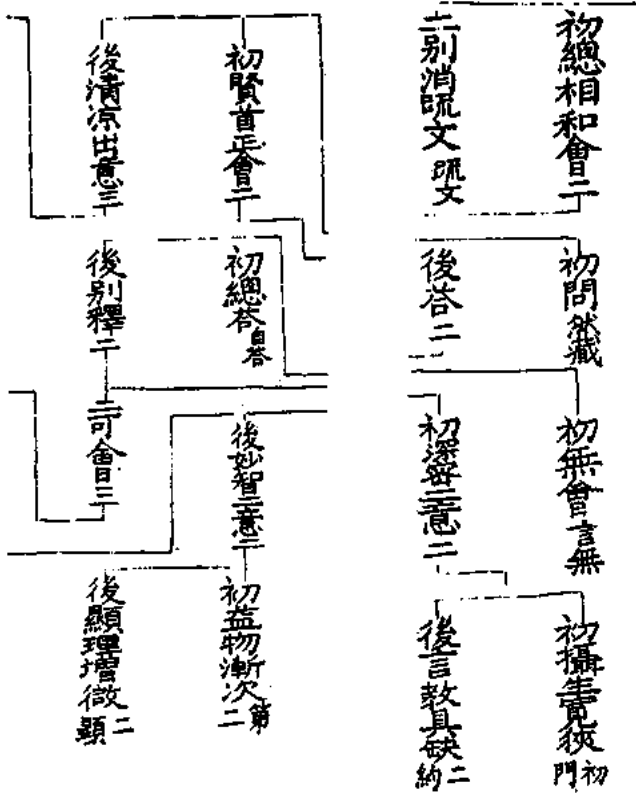 初總相和會二
二別消疏文 疏文
初問 然藏
後答二
初無會 言無
初深密三意二
初攝生寬狹 初門
後言教具缺 二約
初賢首正會二
後清涼出意三
初總答 自答
後別釋二
二可會三
後妙智三意二
初益物漸次 第二
後顯理增微 二顯